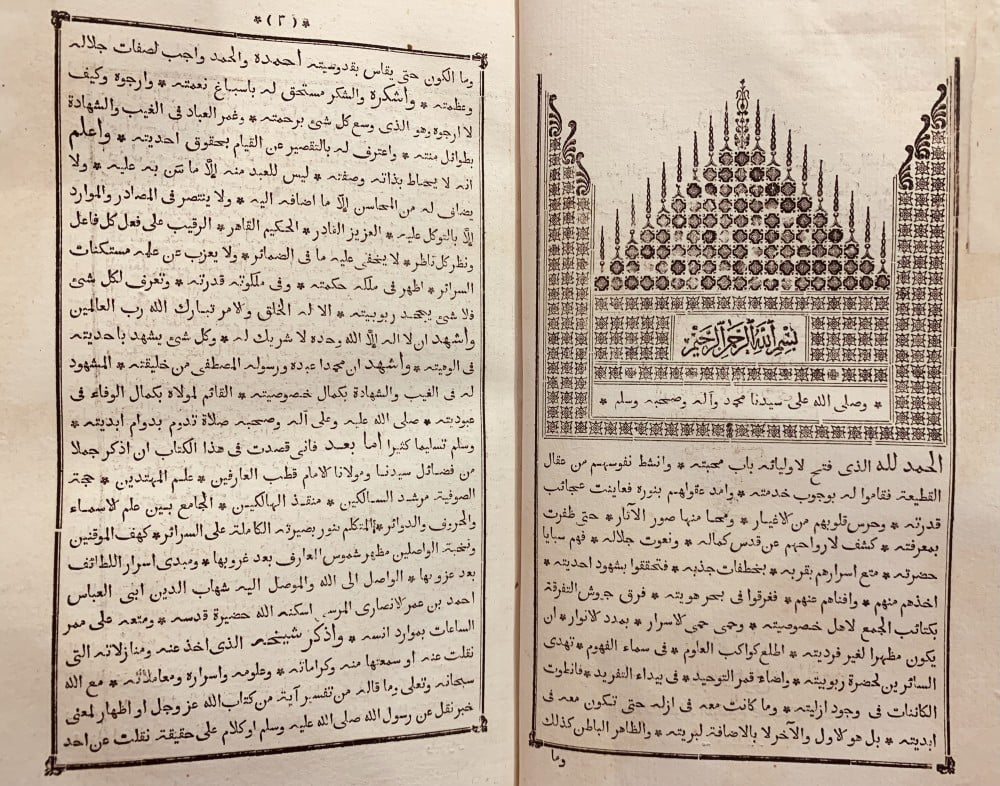 بسم الله الرحمن الرحيم
* وصلى الله على سيدنا محمد وآله وصحبه وسلم *
الحمد لله الذى فتح لاوليائه باب محبته * وانشط نفوسهم من عقال
القطيعة فقاموا له بوجوب خدمته * وامد عقولهم بنوره فعاينت عجائب
قدرته * وحرس قلوبهم من الاغيار * ومحا منها صور الآثار * حتى ظفرت
بمعرفته * كشف لارواحهم عن قدس كماله * ونعوت جلاله * فهم سبايا
حضرته * متع اسرارهم بقربه * بخطفات جذبه * فتحققوا بشهود احديته *
اخذهم منهم * وافناهم عنهم * فغرقوا فى بحر هويته * فرق جيوش التفرقة
بكتائب الجمع لاهل خصوصيته * وحمى حمى الاسرار * بمدد الانوار * ان
يكون مظهرا لغير فرديته * اطلع كواكب العلوم * فى سماء الفهوم * تهدى
السائرين لحضرة ربوبيته * واضاء قمر التوحيد * فى بيداء التفريد * فانطوت
الكائنات فى وجود ازليته * وما كانت معه فى ازله حتى تكون معه فى
ابديته * بل هو الاول والآخر لا بالاضافة لبريته * والظاهر الباطن كذلك
وما
*(٢)*
وما الكون حتى يقاس بقدوسيته أحمده والحمد واجب لصفات جلاله
وعظمته * وأشكره والشكر مستحق له باسباغ نعمته * وارجوه وكيف
لا ارجوه وهو الذى وسع كل شئ برحمته * وغمر العباد فى الغيب والشهادة
بطوائل منته * واعترف له بالتقصير عن القيام بحقوق احديته * وأعلم
انه لا يحاط بذاته وصفته * ليس للعبد منه الّا ما منّ به عليه * ولا
يضاف له من المحاسن الّا ما اضافه اليه * ولا ينتصر فى المصادر والموارد
الّا بالتوكل عليه * العزيز القادر * الحكيم القاهر * الرقيب على فعل كل فاعل
ونظر كل ناظر * لا يخفى عليه ما فى الضمائر * ولا يعزب عن علمه مستكنات
السرائر * اظهر فى ملكه حكمته * وفى ملكوته قدرته * وتعرف لكل شئ
فلا شئ يجحد ربوبيته * الا له الخلق والامر تبارك الله رب العالمين
وأشهد ان لا اله الّا الله وحده لا شريك له * وكل شئ يشهد باحديته
فى الوهيته * وأشهد ان محمدا عبده ورسوله المصطفى من خليقته * المشهود
له فى الغيب والشهادة بكمال خصوصيته * القائم لمولاه بكمال الوفاء فى
عبوديته * صلى الله عليه وعلى آله وصحبه صلاة تدوم بدوام ابديته *
وسلم تسليما كثيرا أما بعد فانى قصدت فى هذا الكتاب ان اذكر جملا
من فضائل سيدنا ومولانا الامام قطب العارفين * علم المهتدين * حجة
الصوفية مرشد السالكين * منقذ الهالكين * الجامع بين علم الاسماء
والحروف والدوائر * المتكلم بنور بصيرته الكاملة على السرائر * كهف الموقنين
ونخبة الواصلين مظهر شموس المعارف بعد غروبها * ومبدى اسرار اللطائف
بعد عزوبها * الواصل الى الله والموصل اليه شهاب الدين ابى العباس
احمد بن عمر الانصارى المرسى اسكنه الله حضيرة قدسه * ومتعه على ممر
الساعات بموارد انسه * وأذكر شيخه الذى اخذ عنه ومنازلاته التى
نقلت عنه او سمعتها منه وكراماته * وعلومه واسراره ومعاملاته * مع الله
سبحانه وتعلى وما قاله من تفسير آية من كتاب الله عز وجل او اظهار لمعنى
خبر نقل عن رسول الله صلى الله عليه وسلم او كلام على حقيقة نقلت عن احد